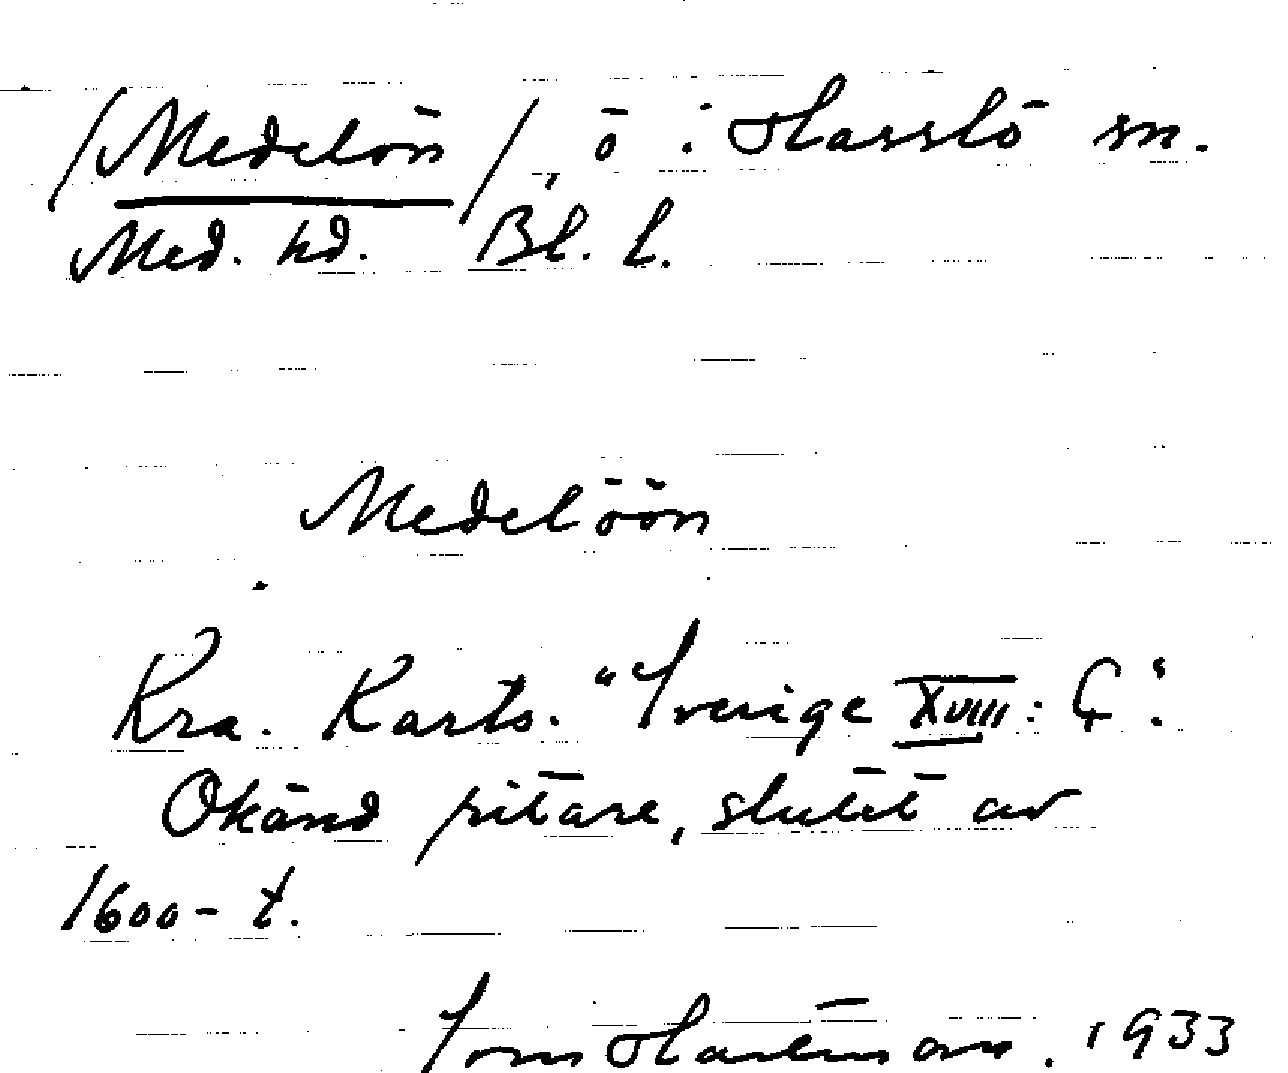 /Medelön/, ö i Hasslö sn.
Med. hd. Bl. l.
Medelöön
Kra. Karts. "Sverige XVIII: G".
Okänd ritare, slutet av
1600-t.
1933